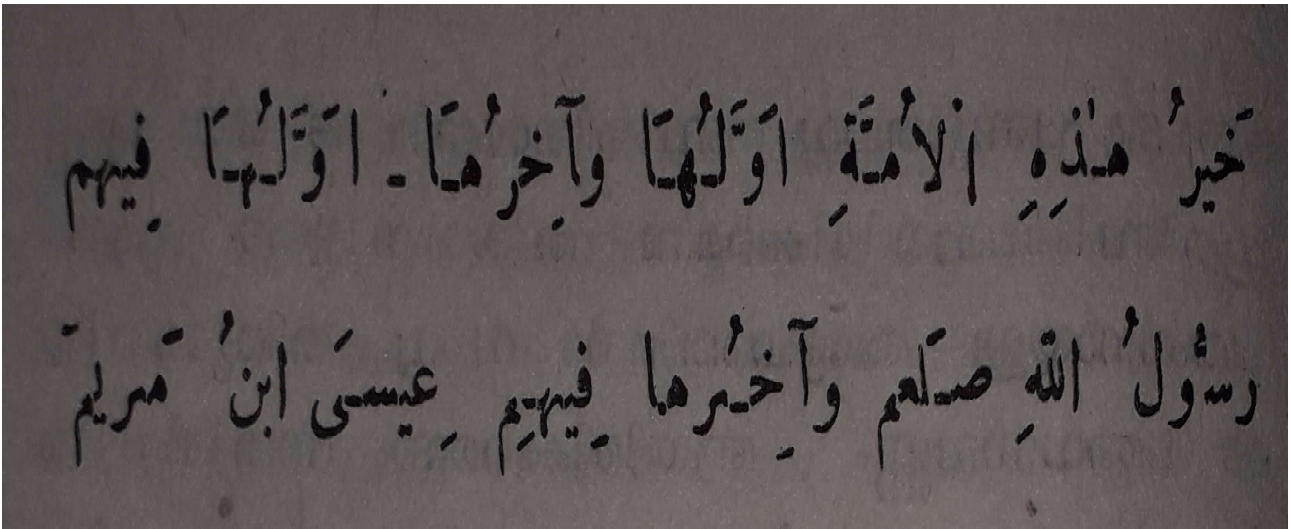 خَيرُ هٰذِهِ الْاُمَّةِ اَوَّلُهَا وآخِرُهَا ـ اَوَّلُهَا فِيهم
رسُولُ اللّٰهِ صَلعم وآخِرُها فِيهِم عِيسىَ ابنُ مَريمَ